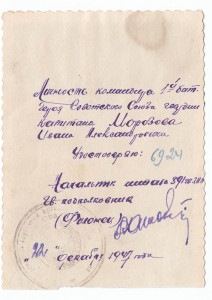 Личность командира 1го бат.
Героя Советского Союза гвардии
капитана Морозова
Ивана Александровича
Удостоверяю: 6924
Начальник штаба 39
Гв. подполковник
"22" декабря 1947 года